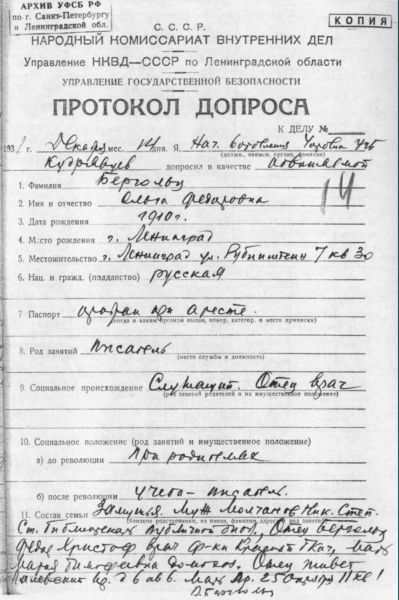 АРХИВ УФСБ РФ
по г. Санкт-Петербургу
и Ленинградской обл.
КОПИЯ
С. С. С. Р.
НАРОДНЫЙ КОМИССАРИАТ ВНУТРЕННИХ ДЕЛ
Управление НКВД—СССР по Ленинградской области
УПРАВЛЕНИЕ ГОСУДАРСТВЕННОЙ БЕЗОПАСНОСТИ
ПРОТОКОЛ ДОПРОСА
К ДЕЛУ №
193 г. Декабря мес. 14 дня. Я, Нач.
(должн., наимен. орган, фамилия)
Кудрявцев допросил в качестве обвиняемой
1. Фамилия Берггольц
14
2. Имя и отчество Ольга Федоровна
3. Дата рождения 1910 г.
4. Место рождения г. Ленинград
5. Местожительство г. Ленинград ул. Рубинштейна 7 кв 30
6. Нац. и гражд. (подданство) русская
7. Паспорт отобран при аресте.
(когда и каким органом выдан, номер, категор. и место приписки)
8. Род занятий писатель
(место службы и должность)
9. Социальное происхождение Служащий. Отец врач
(род занятий родителей и их имущественное положение)
10. Социальное положение (род занятий и имущественное положение)
а) до революции при родителях
б) после революции учеба - писатель.
11. Состав семьи Замужняя. Муж Молчанов Ник. Степ.
(близкие родственники, их имена, фамилии, адреса, род занятий)
Ст. Публичной биб., Отец Берггольц
Федор Христоф врач ф-ки Красный Ткач, мать
Мария Тимофеевна домохоз. Отец живет
Палевский пр. д 6 кв 6. Мать пр. 25 Октября
О. Берггольц